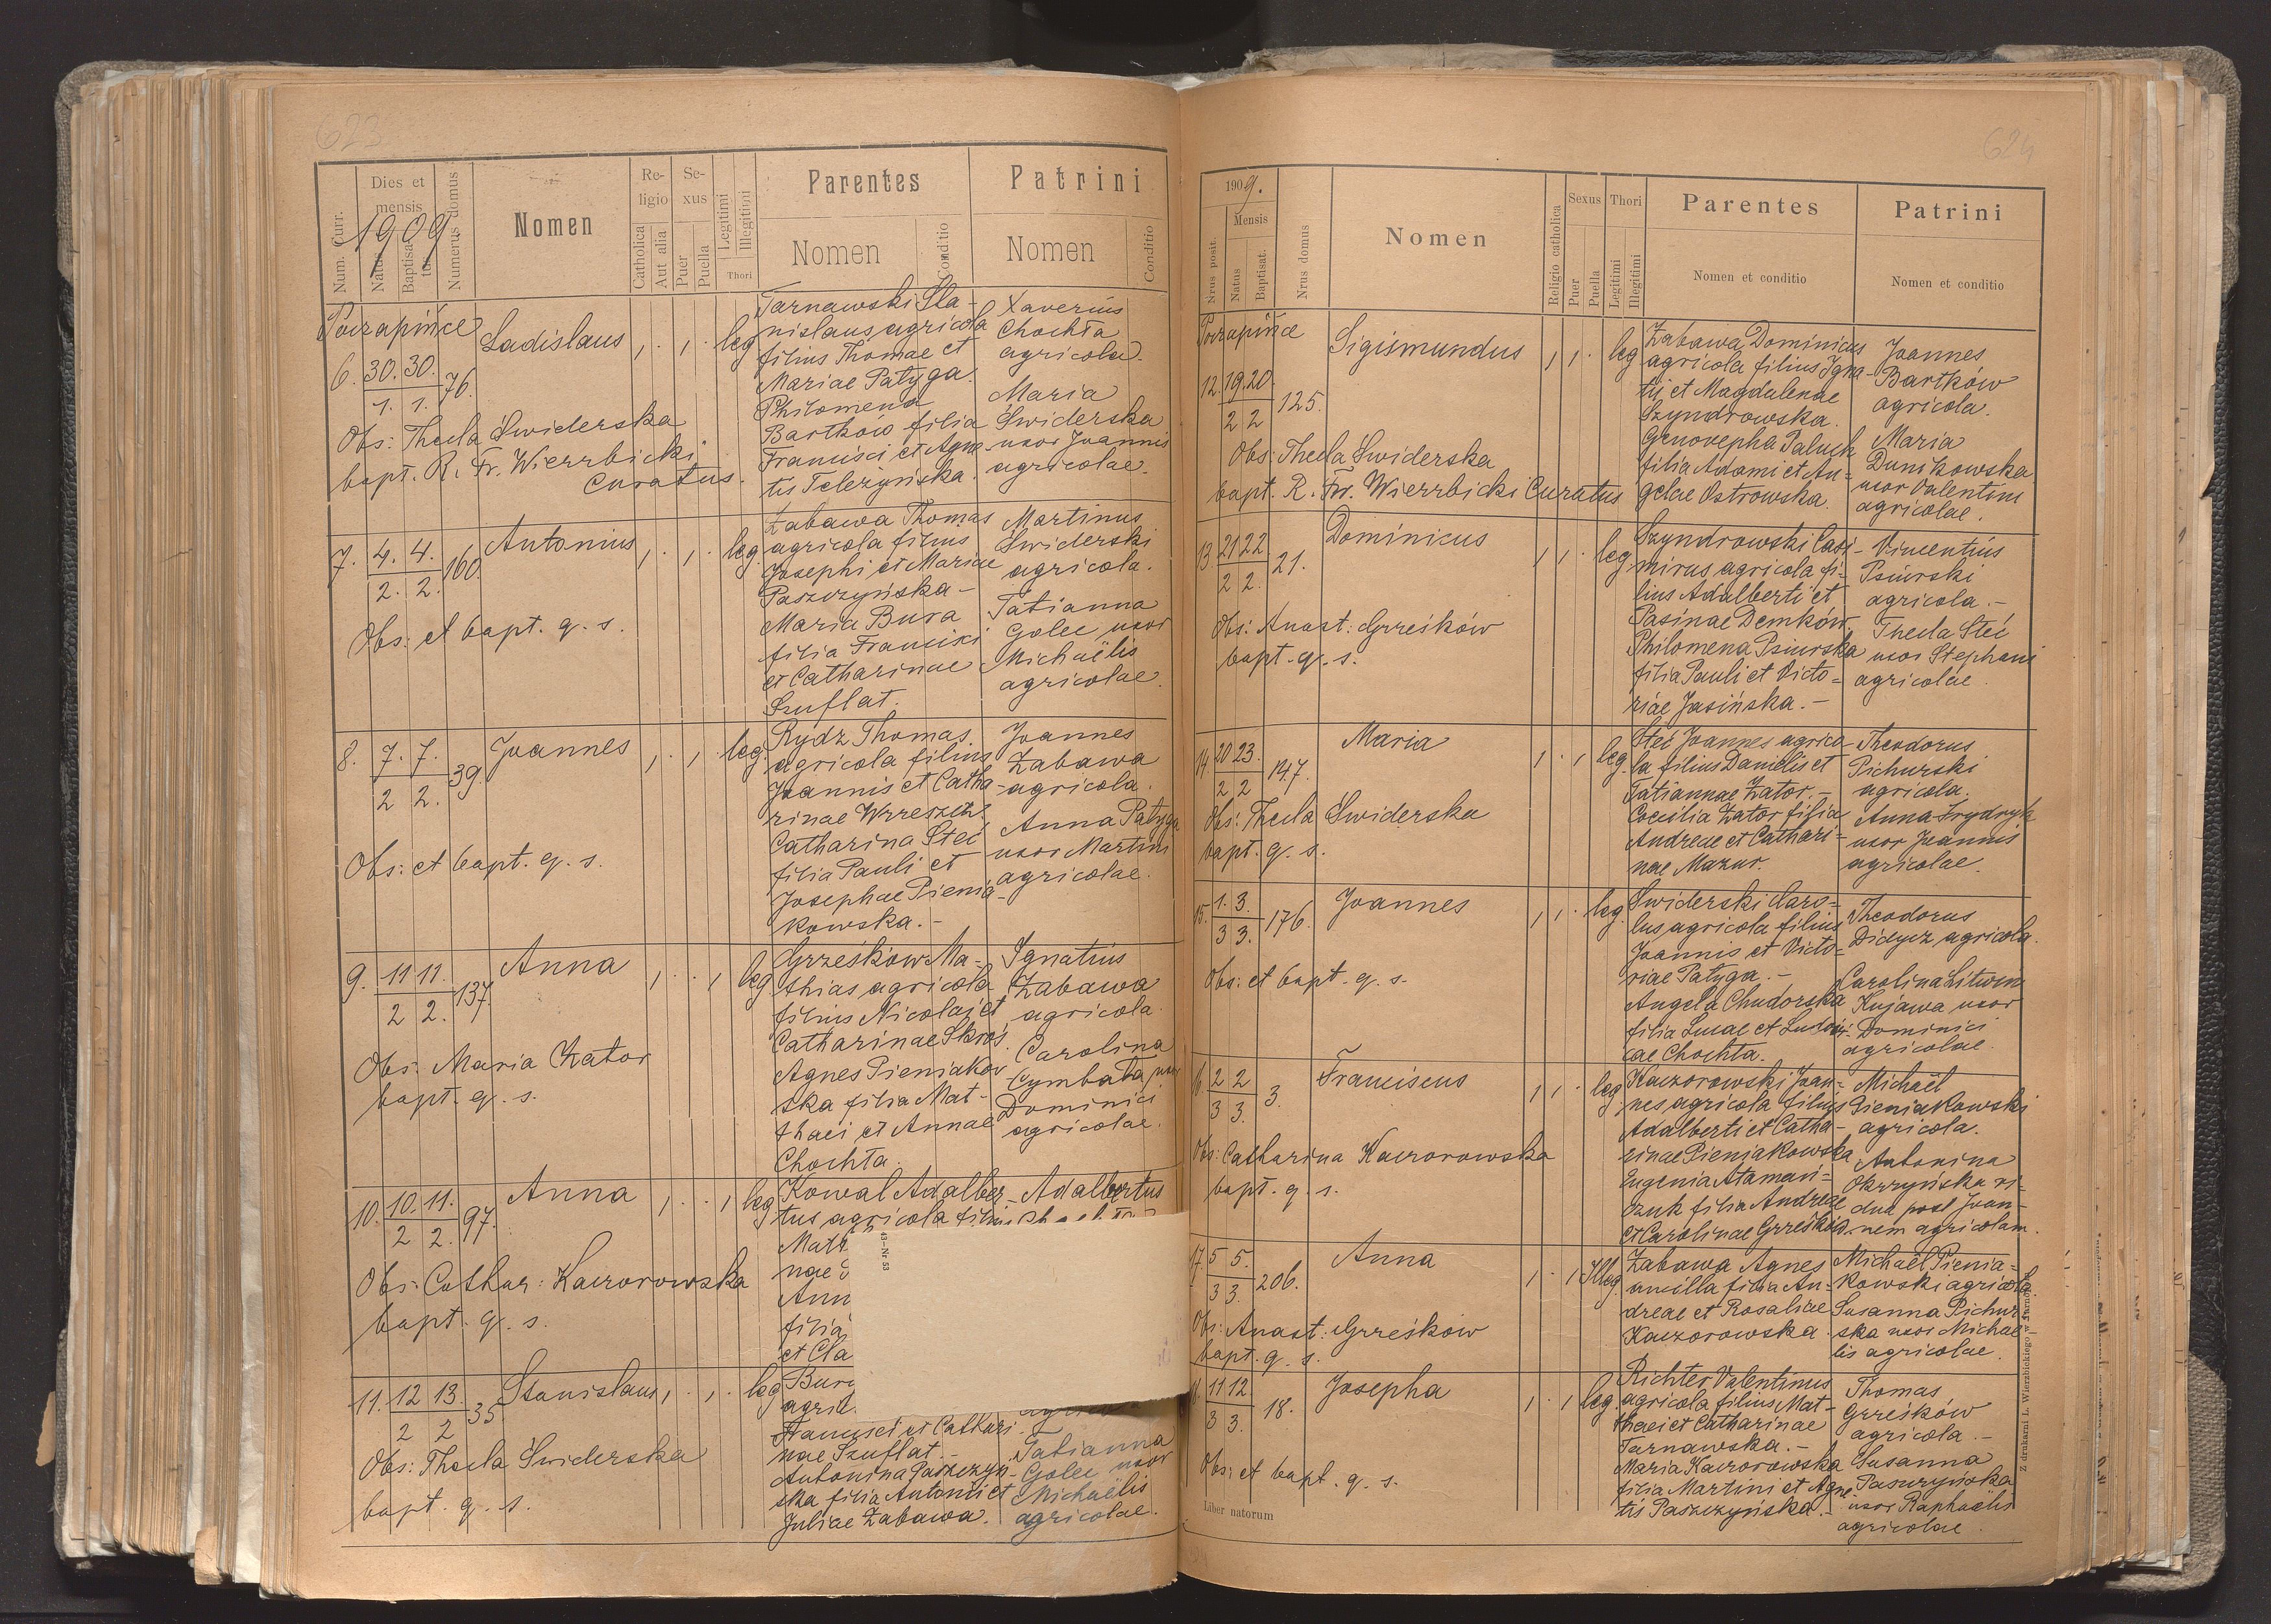 623
Num. Curr.
Dies et mensis
1909.
Natus
Baptisatus
Numerus domus
Nomen
Religio
Catholica
Aut alia
Sexus
Puer
Puella
Legitimi
Illegitimi
Thori
Parentes
Nomen
Conditio
Patrini
Nomen
Conditio
Poczapińce
6. 30. 30. 76.
1. 1.
Ladislaus 1 . 1 . leg
Tarnawski Sta-
nislaus agricola
filius Thomae et
Mariae Patyga.
Philomena
Bartków filia
Francisci et Agne-
tis Teleżyńska.
Xaverius
Chochła
agricola.
Maria
Swiderska
uxor Joannis
agricolae.
Obs: Thecla Swiderska
bapt. R. Fr. Wierzbicki
Curatus.
7. 4. 4. 160.
2. 2.
Antonius 1 . 1 . leg.
Zabawa Thomas
agricola filius
Josephi et Mariae
Paszczyńska -
Maria Bura
filia Franciski
et Catharinae
Szuflat.
Martinus
Swiderski
agricola.
Tatianna
Golec uxor
Michaëlis
agricolae.
Obs: et bapt. q. s.
8. 7. 7. 39.
2 2.
Joannes 1 . 1 . leg.
Rydz Thomas
agricola filius
Joannis et Catha-
rinae
Catharina Steć
filia Pauli et
Josephae Pienią-
kowska. -
Joannes
Zabawa
agricola.
Anna Patyga
uxor Martini
agricolae.
Obs: et bapt. q. s.
9. 11 11. 137.
2 2.
Anna 1 . . 1 leg
Grześków Ma-
thias agricola
filius Nicolai et
Catharinae Skroś.
Agnes Pieniakow
ska filia Mat-
thaei et Annae
Chochła.
Ignatius
Zabawa
agricola.
Carolina
Cymbała uxor
Dominici
agricolae.
Obs: Maria Zator
bapt. q. s.
10. 10. 11. 97.
2 2.
Anna 1 . . 1 leg
Kowal Adalber-
tus agricola filius
Matt
nae
Ann
filia
et Cla
Adalbertus
43—Nr 53
Obs: Cathar: Kaczorowska
bapt. q. s.
11. 12 13. 35
2 2
Stanislaus 1 . 1 . leg
Bura
agric.
Francisci et Cathari-
nae Szuflat. -
Antonina Paszczyń-
ska filia Antonii et
Juliae Zabawa.
Tatianna
Golec uxor
Michaëlis
agricolae.
Obs: Thecla Swiderska
bapt. q. s.
624
Nrus posit.
1909.
Mensis
Natus
Baptisat.
Nrus domus
Nomen
Religio catholica
Sexus
Puer
Puella
Thori
Legitimi
Illegitimi
Parentes
Nomen et conditio
Patrini
Nomen et conditio
Poczapińce
12. 19. 20. 125.
2 2
Sigismundus 1 1 . leg
Zabawa Dominicus
agricola filius Igna-
tii et Magdalenae
Szyndrowska.
Genovepha Paluch
filia Adami et An-
gelae Ostrowska.
Joannes
Bartków
agricola.
Maria
Dunikowska
uxor Valentini
agricolae.
Obs: Thecla Swiderska
bapt. R. Fr. Wierzbicki Curatus
13. 21 22 21.
2 2.
Dominicus 1 1 . leg.
Szyndrowski Casi-
mirus agricola fi-
lius Adalberti et
Pasinae Demków.
Philomena Psiurska
filia Pauli et Victo-
riae Jasińska. -
Vincentius
Psiurski
agricola. -
Thecla Steć
uxor Stephani
agricolae
Obs: Anast: Grześków
bapt. q. s.
14. 20 23. 147.
2 2
Maria 1 . 1 leg.
Steć Joannes agrico-
la filius Danielis et
Tatiannae Zator. -
Coecilia Zator filia
Andreae et Cathari-
nae Mazur.
Theodorus
Pichurski
agricola.
Anna Frydryk
uxor Joannis
agricolae.
Obs: Thecla Swiderska
bapt. q. s.
15. 1. 3. 176.
3 3.
Joannes 1 1 . leg.
Swiderski Caro-
lus agricola filius
Joannis et Victo-
riae Patyga. -
Angela Chudorska
filia Lucae et Ludovi-
cae Chochła.
Theodorus
Didycz agricola.
Carolina Litwin
Kujawa uxor
Dominici
agricolae.
Obs: et bapt. q. s.
16. 2 2 3.
3 3.
Franciscus 1 1 . leg.
Kaczorowski Joan-
nes agricola filius
Adalberti et Catha-
rinae Pieniakowska
Eugenia Ataman-
czuk filia Andreae
et Carolinae Grześków.
Michaël
Pieniakowski
agricola.
Antonina
Okrzyńska vi-
dua post Joan-
nem agricolam.
Obs: Catharina Kaczorowska
bapt. q. s.
17. 5 5. 206.
3 3.
Anna 1 . 1 Illeg.
Zabawa Agnes
ancilla filia An-
dreae et Rosaliae
Kaczorowska.
Michaël Pienia-
kowski agricola.
Susanna Pichur-
ska uxor Michaë-
lis agricolae.
Obs: Anast: Grześków
bapt. q. s.
18. 11 12. 18.
3 3.
Josepha 1 . 1 leg.
Richter Valentinus
agricola filius Mat-
thaei et Catharinae
Tarnawska. -
Maria Kaczorowska
filia Martini et Agne-
tis Paszczyńska. -
Thomas
Grześków
agricola. -
Susanna
Paszczyńska
uxor Raphaëlis
agricolae.
Obs: et bapt. q. s.
Liber natorum
Z drukarni L. Wierzbickiego w Tarnop.